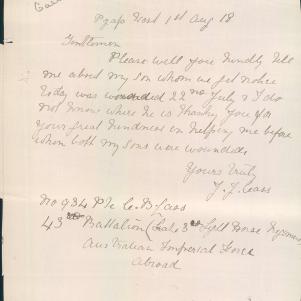 1st Aug 18
Gentlemen
Please will you kindly tell
me about my son whom we got notice
today was wounded 22nd July & I do
not know where he is Thanking you for
your great kindness in helping me before
when both my sons were wounded
Yours truly
No 934 Pte C. B.
43rd Battalion (Late 3rd Light Horse
Australian Imperial Force
Abroad